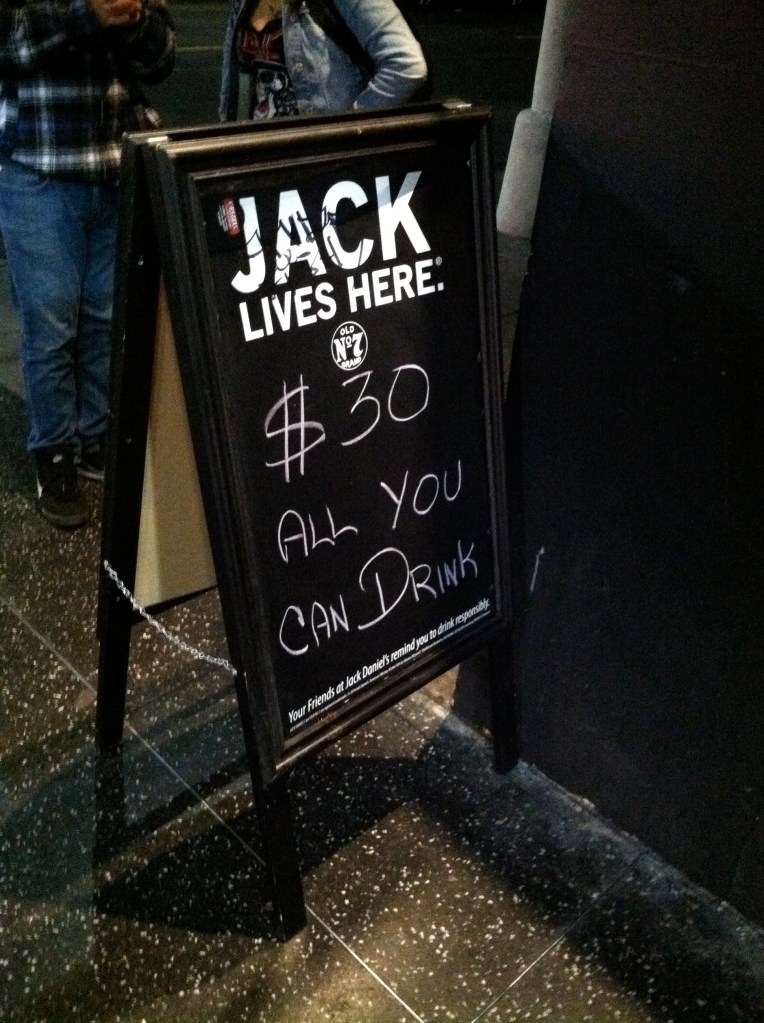 JACK
LIVES HERE.®
OLD
Nº7
BRAND
$30
ALL YOU
CAN DRINK
Your Friends at Jack Daniel's remind you to drink responsibly.